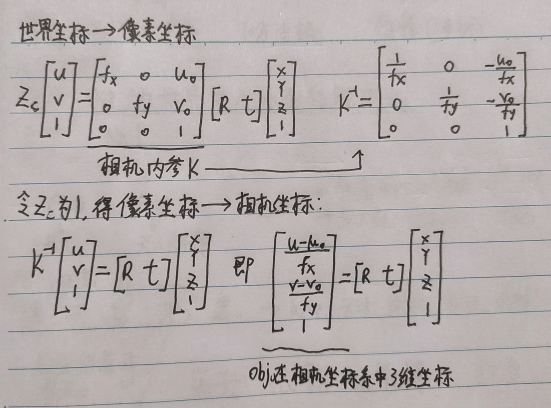 世界坐标→像素坐标
Zc [u v 1] = [fx 0 u0; 0 fy v0; 0 0 1] [R t] [X Y Z 1]  K⁻¹ = [1/fx 0 -u0/fx; 0 1/fy -v0/fy; 0 0 1]
相机内参K
令Zc为1,得像素坐标→相机坐标:
K⁻¹ [u v 1] = [R t] [X Y Z 1] 即 [(u-u0)/fx (v-v0)/fy 1] = [R t] [X Y Z 1]
obj在相机坐标系中3维坐标